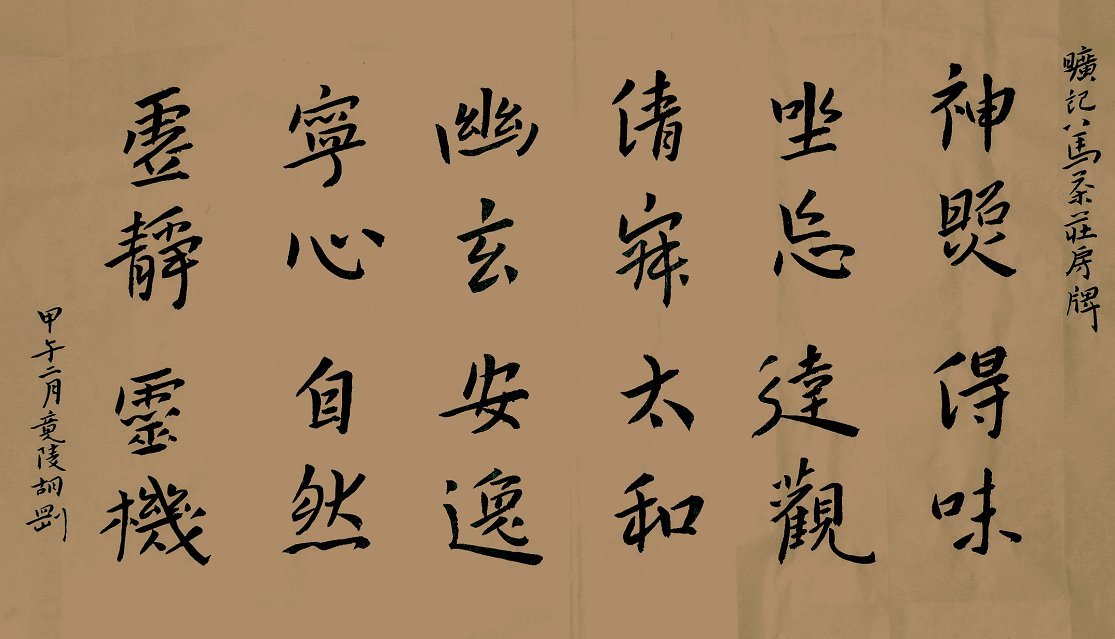 曠記八馬茶莊房牌
神照得味
坐忘達觀
倩寐太和
幽玄安逸
寧心自然
虛靜靈機
甲午二月竟陵胡罡